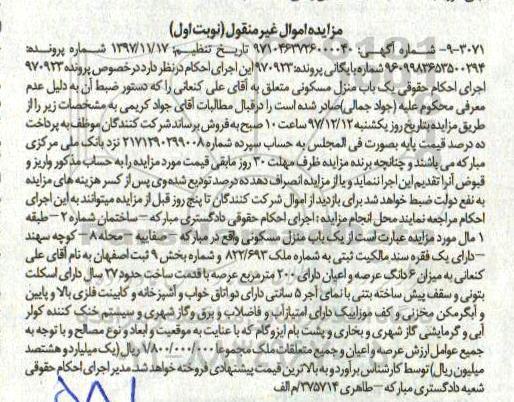 مزایده اموال غیر منقول (نوبت اول)
۹-۳۰۷۱- شماره آگهی: ۹۷۱۰۴۶۳۷۲۶۰۰۰۰۴۰ تاریخ تنظیم: ۱۳۹۷/۱۱/۱۷ شماره پرونده:
۹۶۰۹۹۸۳۶۵۳۵۰۰۲۹۴ شماره بایگانی پرونده: ۹۷۰۹۲۳ این اجرای احکام در نظر دارد در خصوص پرونده ۹۷۰۹۲۳
اجرای احکام حقوقی یک باب منزل مسکونی متعلق به آقای علی کنعانی را که دستور ضبط آن به دلیل عدم
معرفی محکوم علیه (جواد جمالی) صادر شده است را در قبال مطالبات آقای جواد کریمی به مشخصات زیر را از
طریق مزایده بتاریخ روز یکشنبه ۹۷/۱۲/۱۲ ساعت ۱۰ صبح به فروش برساند شرکت کنندگان موظف به پرداخت
ده درصد قیمت پایه بصورت فی المجلس به حساب سپرده شماره ۲۱۷۱۲۹۰۲۹۹۰۰۸ نزد بانک ملی مرکزی
مبارکه می باشند و چنانچه برنده مزایده ظرف مهلت ۳۰ روز مابقی قیمت مورد مزایده را به حساب مذکور واریز و
قبوض آنرا تقدیم این اجرا ننماید و یا از مزایده انصراف دهد ده درصد تودیع شده وی پس از کسر هزینه های مزایده
به نفع دولت ضبط خواهد شد برای بازدید از اموال شرکت کنندگان تا پنج روز قبل از مزایده میتوانند به این اجرای
احکام مراجعه نمایند محل انجام مزایده: اجرای احکام حقوقی دادگستری مبارکه – ساختمان شماره ۲ – طبقه
۱ مال مورد مزایده عبارت است از یک باب منزل مسکونی واقع در مبارکه – صفاییه – محله ۸ – کوچه سهند
– دارای یک فقره سند مالکیت ثبتی به شماره ملک ۸۲۲/۶۹۳ و شماره بخش ۹ ثبت اصفهان به نام آقای علی
کنعانی به میزان ۶ دانگ عرصه و اعیان دارای ۲۰۰ مترمربع عرصه با قدمت ساخت حدود ۲۷ سال دارای اسکلت
بتونی و سقف پیش ساخته بتنی با نمای آجر ۵ سانتی دارای دو اتاق خواب و آشپزخانه و کابینت فلزی بالا و پایین
و آبگرمکن مخزنی و کف موزاییک دارای امتیاز آب و فاضلاب و برق و گاز شهری و سیستم خنک کننده کولر
آبی و گرمایشی گاز شهری و بخاری و پشت بام ایزوگام که با عنایت به موقعیت و ابعاد و نوع مصالح و با توجه به
جمیع عوامل ارزش عرصه و اعیان و جمیع متعلقات ملک مجموعا ۱/۸۰۰/۰۰۰/۰۰۰ ریال (یک میلیارد و هشتصد
میلیون ریال) توسط کارشناس برآورد و به بالاترین قیمت پیشنهادی فروخته خواهد شد. مدیر اجرای احکام حقوقی
شعبه دادگستری مبارکه – طاهری ۳۷۵۷۱۴/م الف